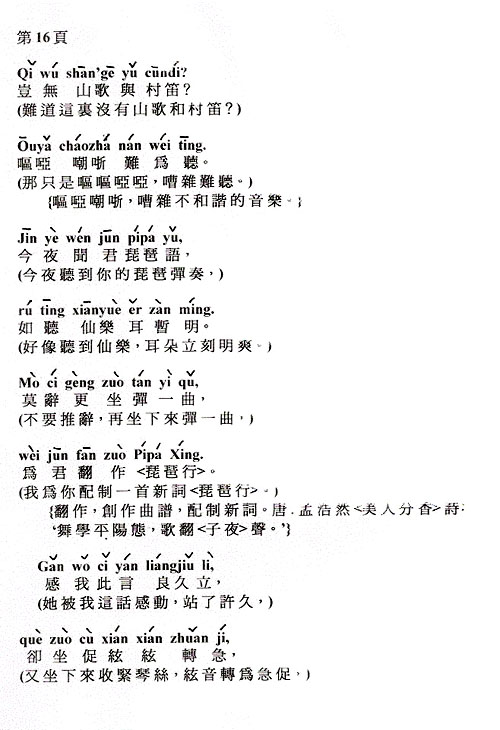 第16頁
Qǐ wú shān'gē yǔ cūndí?
豈無 山歌與 村笛?
(難道這裏沒有山歌和村笛?)
Ōuyǎ cháozhā nán wéi tīng.
嘔啞 嘲哳 難 為 聽。
(那只是嘔嘔啞啞,嘈雜難聽。)
{嘔啞嘲哳,嘈雜不和諧的音樂。}
Jīn yè wén jūn pípá yǔ,
今 夜 聞 君 琵琶語,
(今夜聽到你的琵琶彈奏,)
rú tīng xiānyuè ěr zàn míng.
如 聽 仙樂 耳 暫 明。
(好像聽到仙樂,耳朵立刻明爽。)
Mò cí gèng zuò tán yì qǔ,
莫 辭 更 坐 彈 一 曲,
(不要推辭,再坐下來彈一曲,)
wèi jūn fān zuò Pípá Xíng.
為 君 翻 作 <琵琶行>。
(我為你配制一首新詞<琵琶行>。)
{翻作,創作曲譜,配制新詞。唐.孟浩然<美人分香>詩:
‘舞學平陽態,歌翻<子夜>聲。’}
Gǎn wǒ cǐ yán liángjiǔ lì,
感 我 此 言 良久 立,
(她被我這話感動,站了許久,)
què zuò cù xián xián zhuǎn jí,
卻 坐 促 絃 絃 轉 急,
(又坐下來收緊琴絲,絃音轉為急促,)